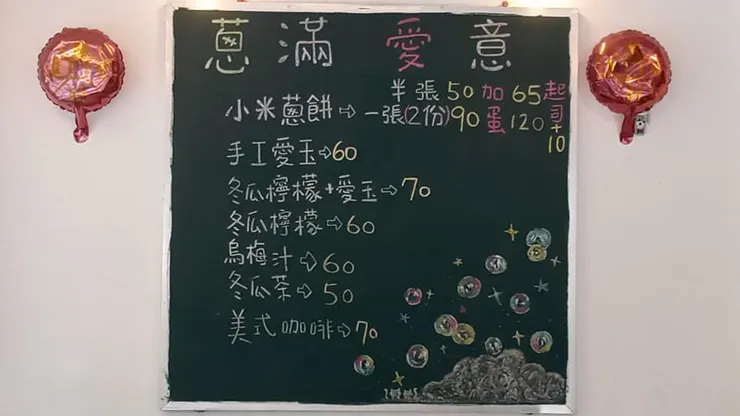 蔥滿愛意
半張50加65起
小米蔥餅⇨一張(2份)90蛋120司
+10
手工愛玉⇨60
冬瓜檸檬+愛玉⇨70
冬瓜檸檬⇨60
烏梅汁⇨60
冬瓜茶⇨50
美式咖啡⇨70